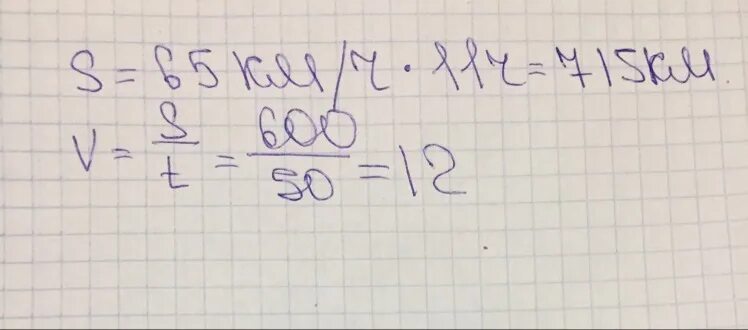 S = 65 км/ч · 11ч = 715км.
V = S/t = 600/50 = 12